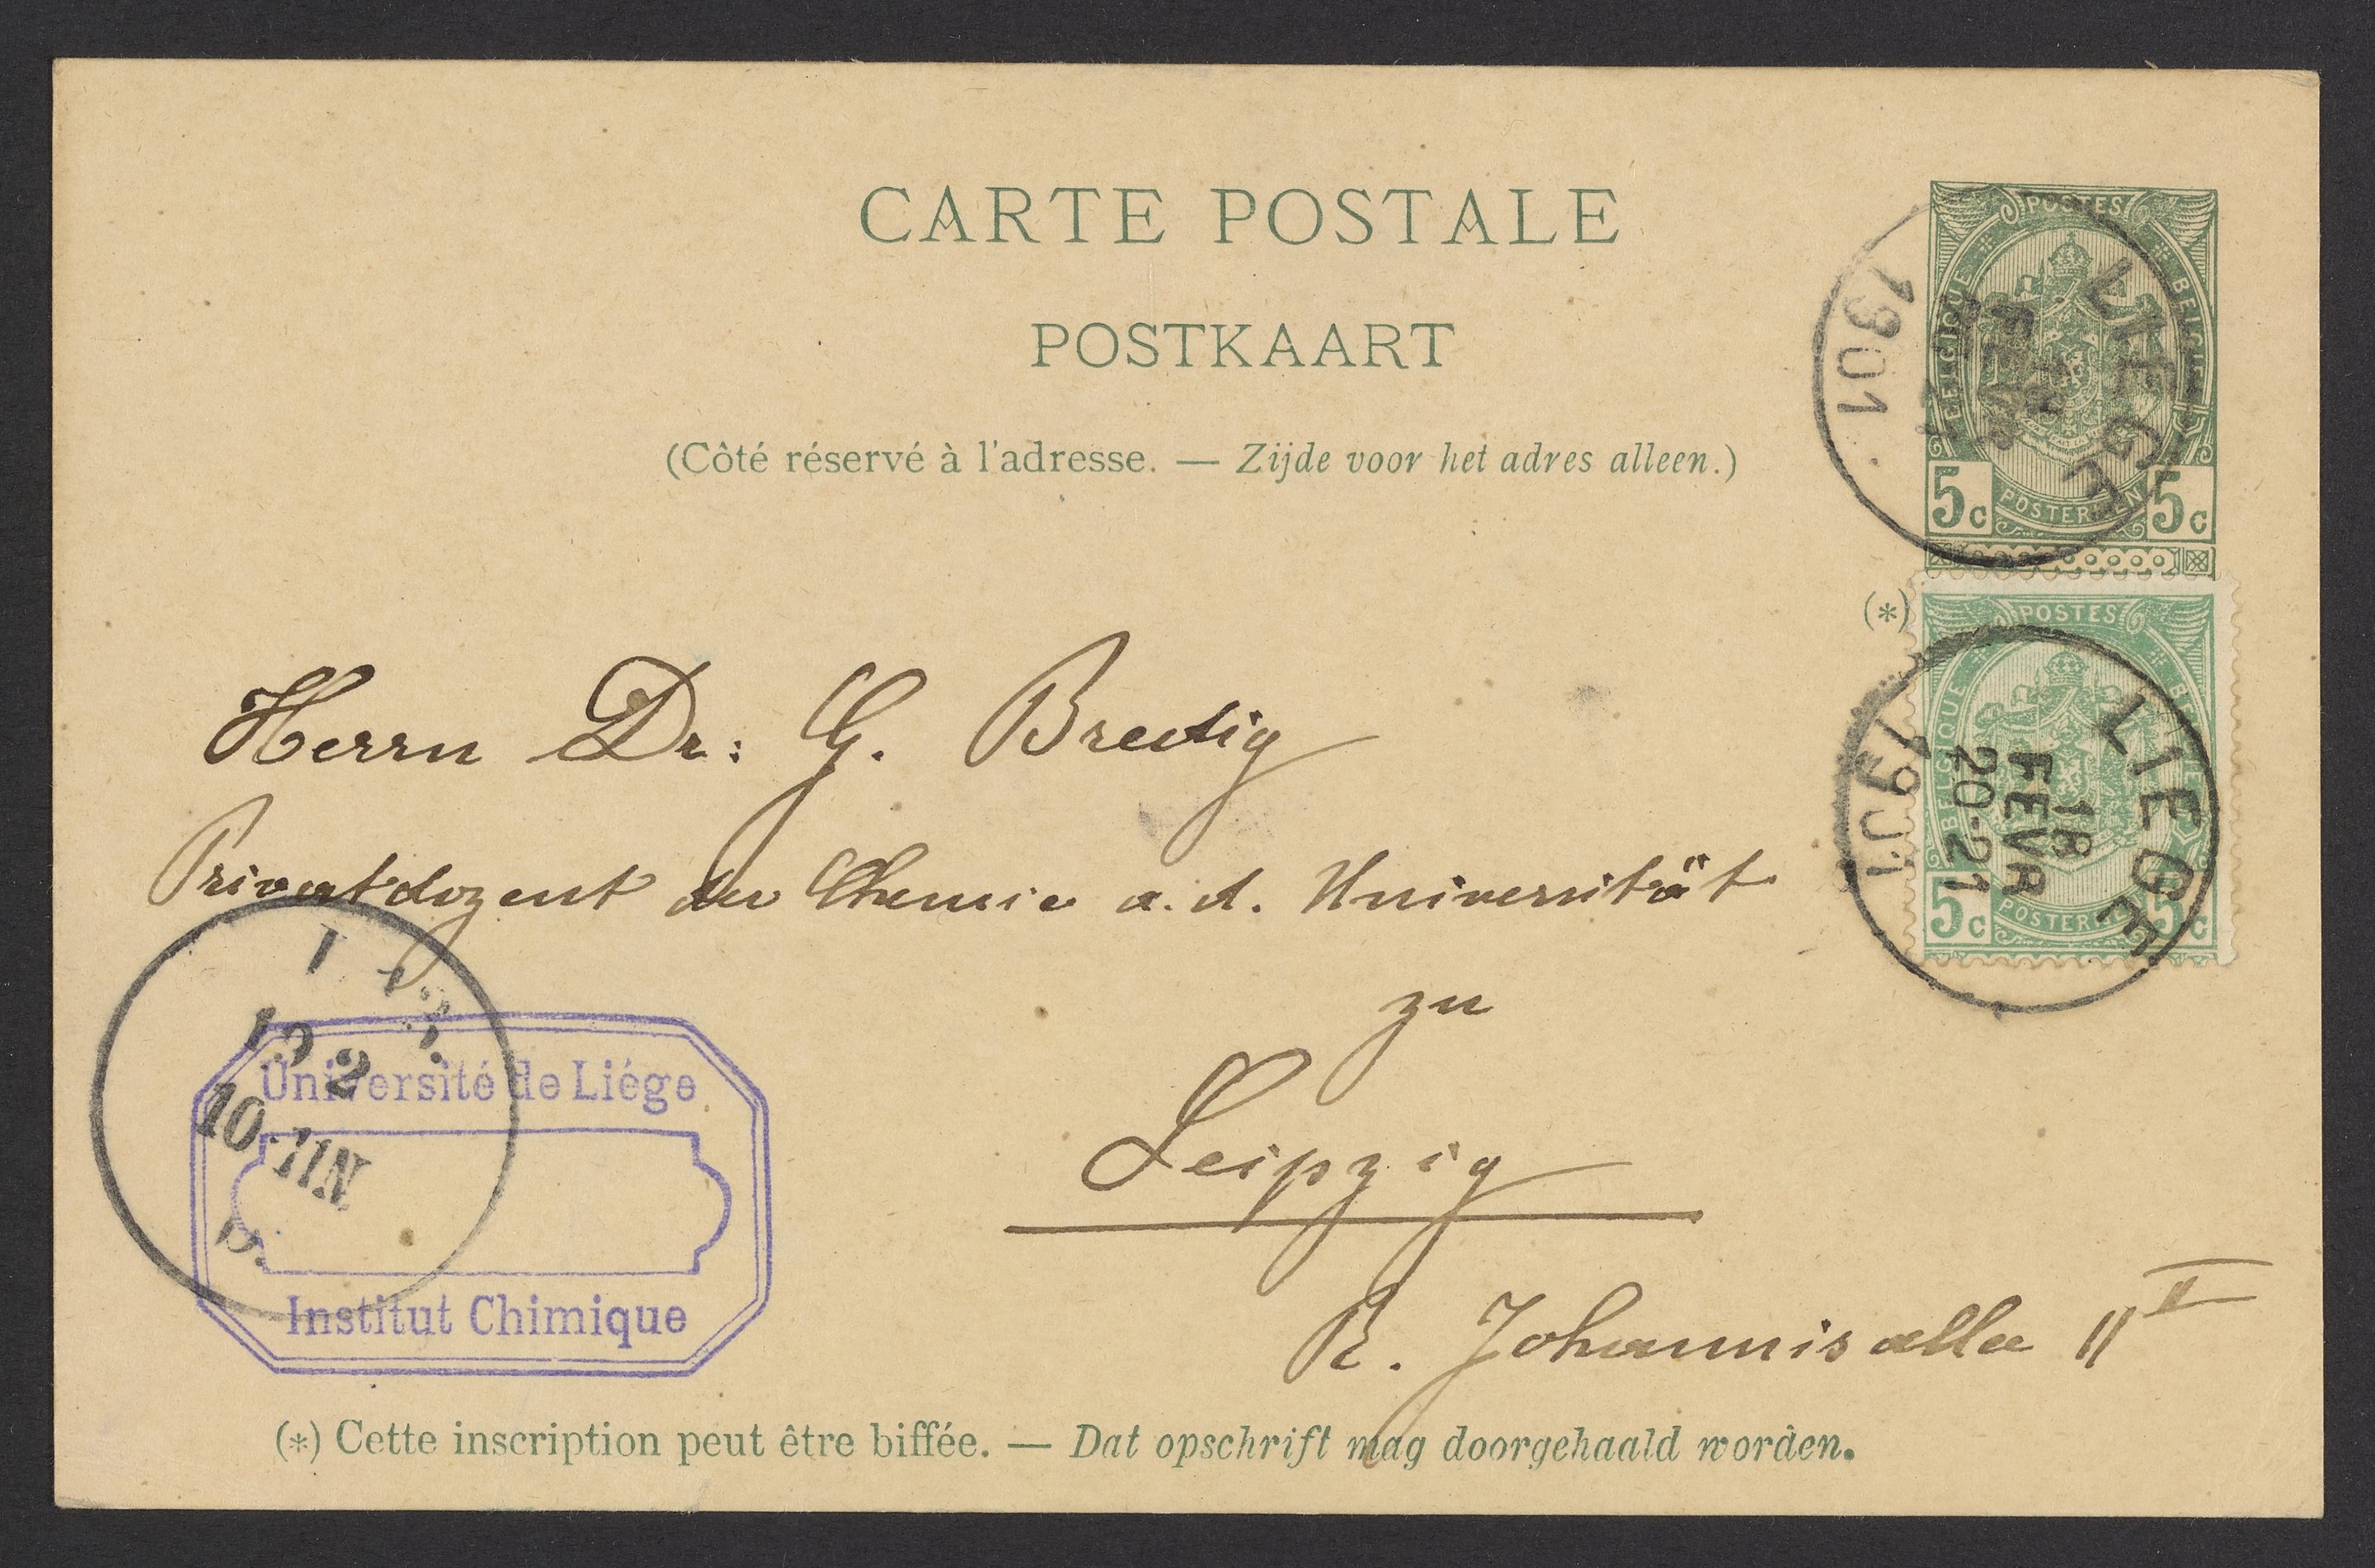 CARTE POSTALE
POSTKAART
(Côté réservé à l'adresse. — Zijde voor het adres alleen.)
POSTES
BELGIQUE BELGIE
5c POSTERIJEN 5c
LIEGE
18
FEVR
1901
(*)
POSTES
BELGIQUE BELGIE
5c POSTERIJEN 5c
LIEGE
18
FEVR
20-21
1901
Herrn Dr: G. Bredig
Privatdozent der Chemie a. d. Universität
zu
Leipzig
R. Johannisallee 11 II
2
10-11N
Université de Liége
Institut Chimique
(*) Cette inscription peut être biffée. — Dat opschrift mag doorgehaald worden.